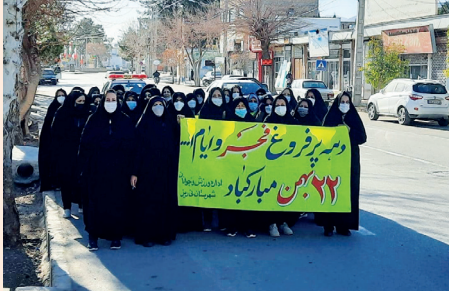 دهه پر فروغ فجر و ایام ا...
۲۲ بهمن مبارکباد
اداره ورزش و جوانان
شهرستان